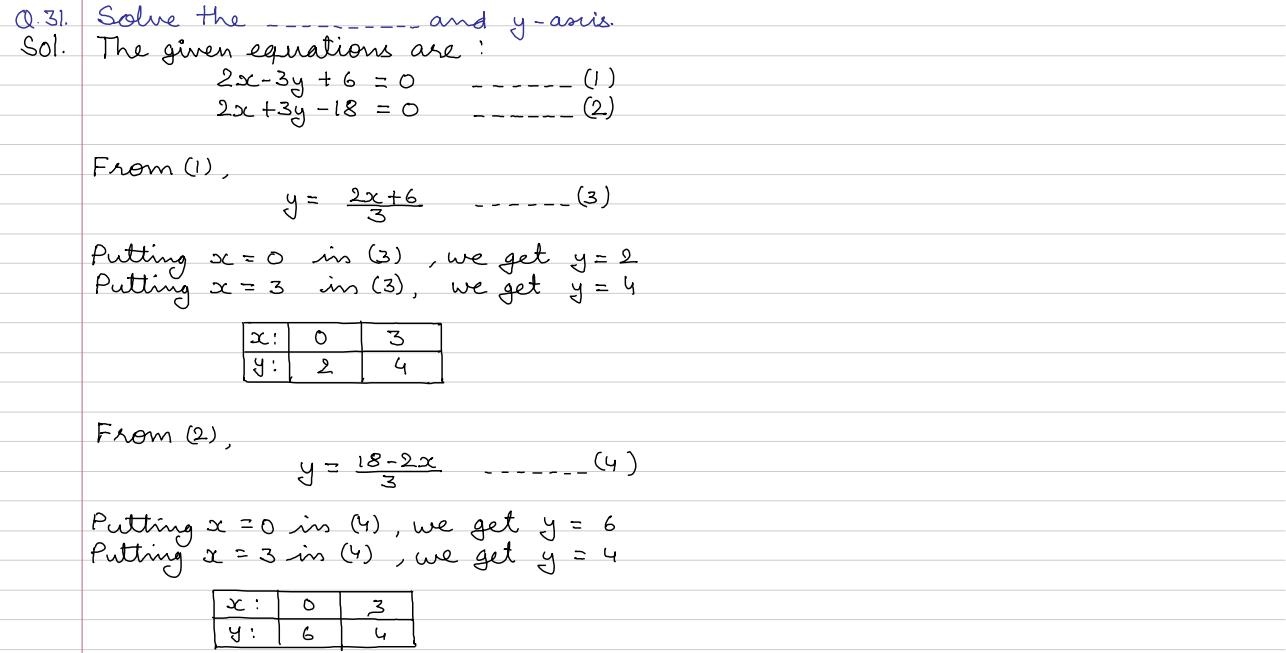 Q.31. Solve the ---------- and y-axis.
Sol. The given equations are :
2x-3y + 6 = 0 ------ (1)
2x+3y-18 = 0 ------ (2)
From (1),
y = 2x+6/3 ------ (3)
Putting x = 0 in (3) , we get y = 2
Putting x = 3 in (3), we get y = 4
x: 0 3
y: 2 4
From (2),
y = 18-2x/3 ------- (4)
Putting x = 0 in (4), we get y = 6
Putting x = 3 in (4) , we get y = 4
x : 0 3
y : 6 4